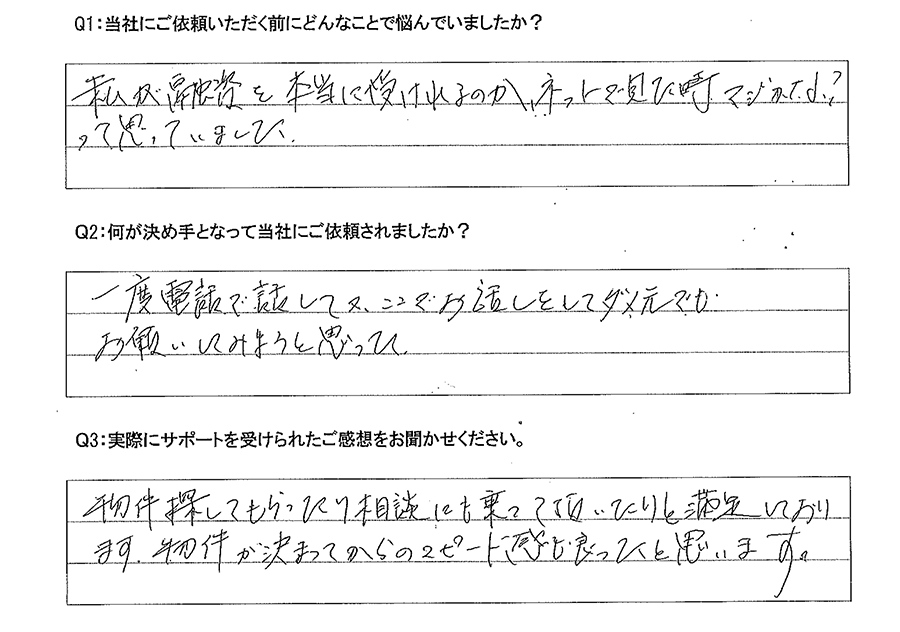 Q1：当社にご依頼いただく前にどんなことで悩んでいましたか？
私が融資を本当に受けれるのか、ネットで見た時マジかな、？
って思っていました、
Q2：何が決め手となって当社にご依頼されましたか？
一度電話で話してみ、ここでお話しをしてダメ元でも
お願いしてみようと思った、
Q3：実際にサポートを受けられたご感想をお聞かせください。
物件探してもらったり相談にも乗って頂いたりと満足しており
ます、物件が決まってからのスピード感も良かったと思います。